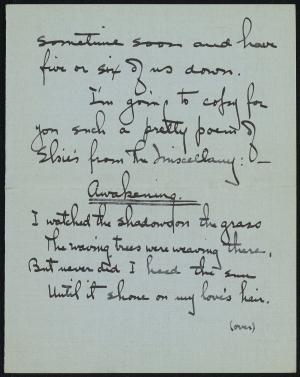 sometime soon and have
five or six of us down.
I'm going to copy for
you such a pretty poem of
Elsie's from the Miscellany: –
Awakening.
I watched the shadows on the grass
The waving trees were weaving there,
But never did I heed the sun
Until it shone on my love's hair.
(over)